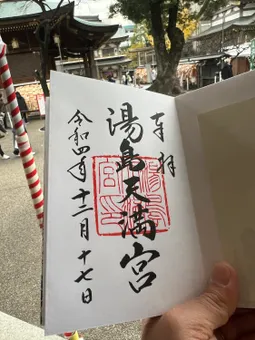 奉拝
湯島天満宮
令和四年十二月十七日